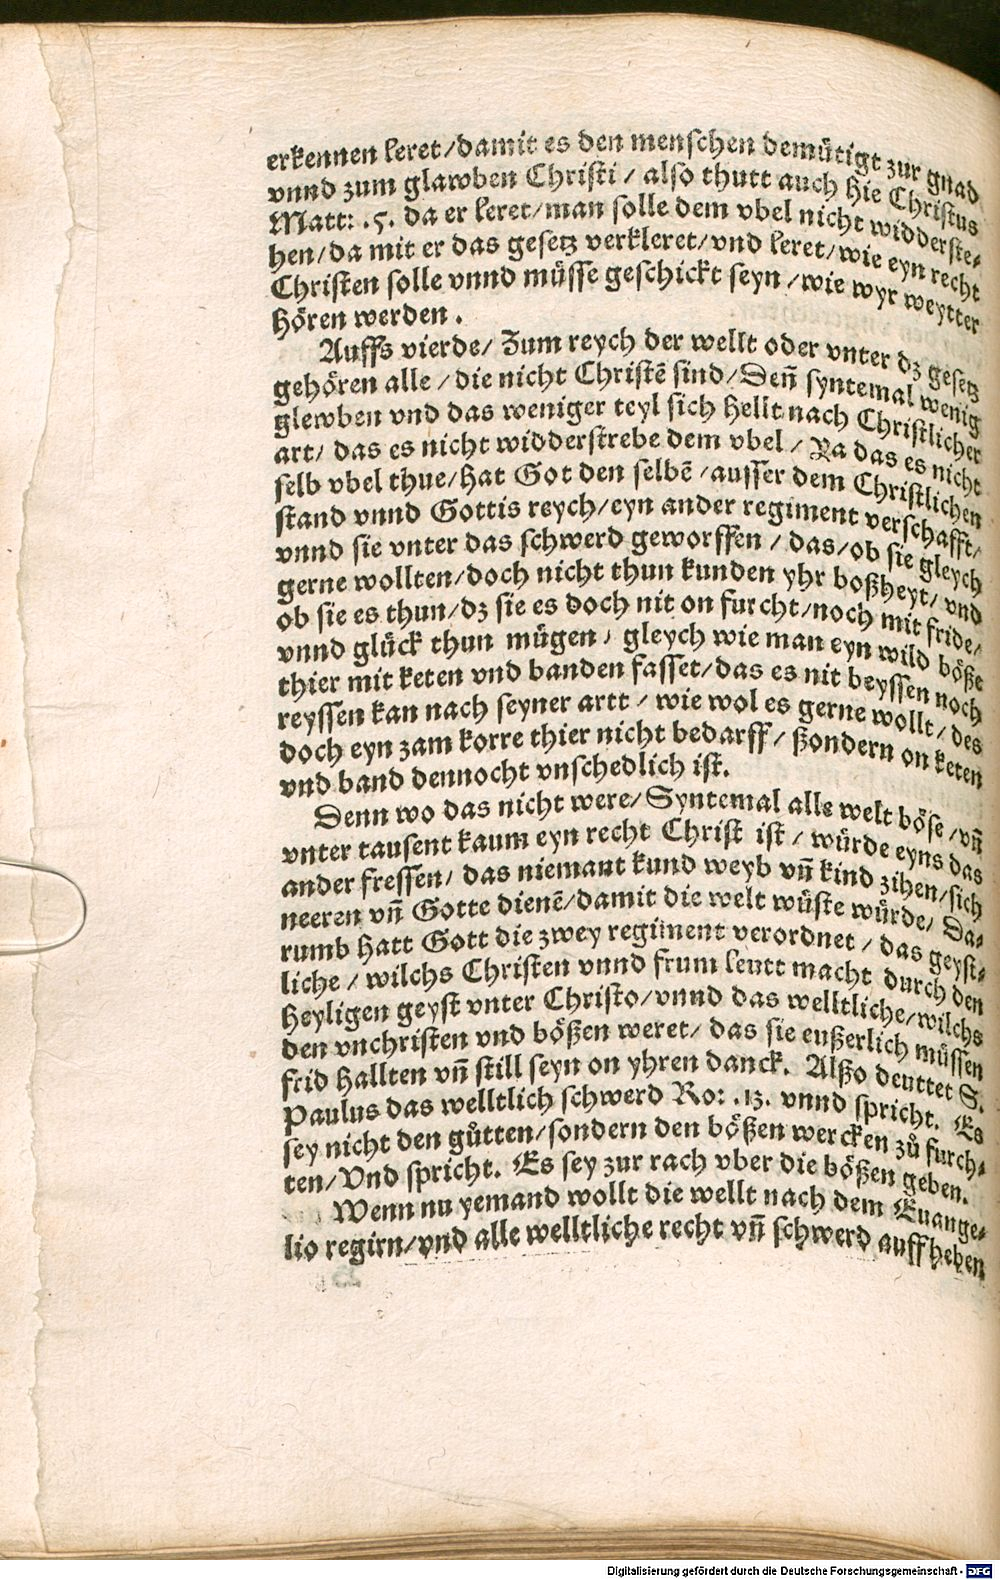 erkennen leret/damit es den menschen demütigt zur gnad
vnnd zum glawben Christi / also thutt auch hie Christus
Matt: .5. da er leret/man solle dem vbel nicht widderste-
hen/da mit er das gesetz verkleret/vnd leret/wie eyn recht
Christen solle vnnd müsse geschickt seyn /wie wyr weytter
hören werden .
Auffs vierde/ Zum reych der wellt oder vnter dz gesetz
gehören alle /die nicht Christẽ sind/Deñ syntemal wenig
glewben vnd das weniger teyl sich hellt nach Christlicher
art/ das es nicht widderstrebe dem vbel / Ja das es nicht
selb vbel thue/hat Got den selbẽ /ausser dem Christlichen
stand vnnd Gottis reych/eyn ander regiment verschafft/
vnnd sie vnter das schwerd geworffen / das/ob sie gleych
gerne wollten/doch nicht thun kunden yhr boßheyt/ vnd
ob sie es thun/dz sie es doch nit on furcht/noch mit fride/
vnnd glück thun mügen, gleych wie man eyn wild böße
thier mit keten vnd banden fasset/das es nit beyssen noch
reyssen kan nach seyner artt / wie wol es gerne wollt/ des
doch eyn zam korre thier nicht bedarff/ ßondern on keten
vnd band dennocht vnschedlich ist.
Denn wo das nicht were/Syntemal alle welt böse /vñ
vnter tausent kaum eyn recht Christ ist / würde eyns das
ander fressen/ das niemant kund weyb vñ kind zihen/sich
neeren vñ Gotte dienẽ/damit die welt wüste würde/ Da-
rumb hatt Gott die zwey regiment verordnet / das geyst-
liche / wilchs Christen vnnd frum leutt macht durch den
heyligen geyst vnter Christo/vnnd das welltliche/wilchs
den vnchristen vnd bößen weret/ das sie eußerlich müssen
frid hallten vñ still seyn on yhren danck. Alßo deuttet S.
Paulus das welltlich schwerd Ro: .13. vnnd spricht. Es
sey nicht den gůtten/sondern den bößen wercken zů furch-
ten/Vnd spricht. Es sey zur rach vber die bößen geben.
Wenn nu yemand wollt die wellt nach dem Euange-
lio regirn/vnd alle welltliche recht vñ schwerd auffheben
Digitalisierung gefördert durch die Deutsche Forschungsgemeinschaft - DFG